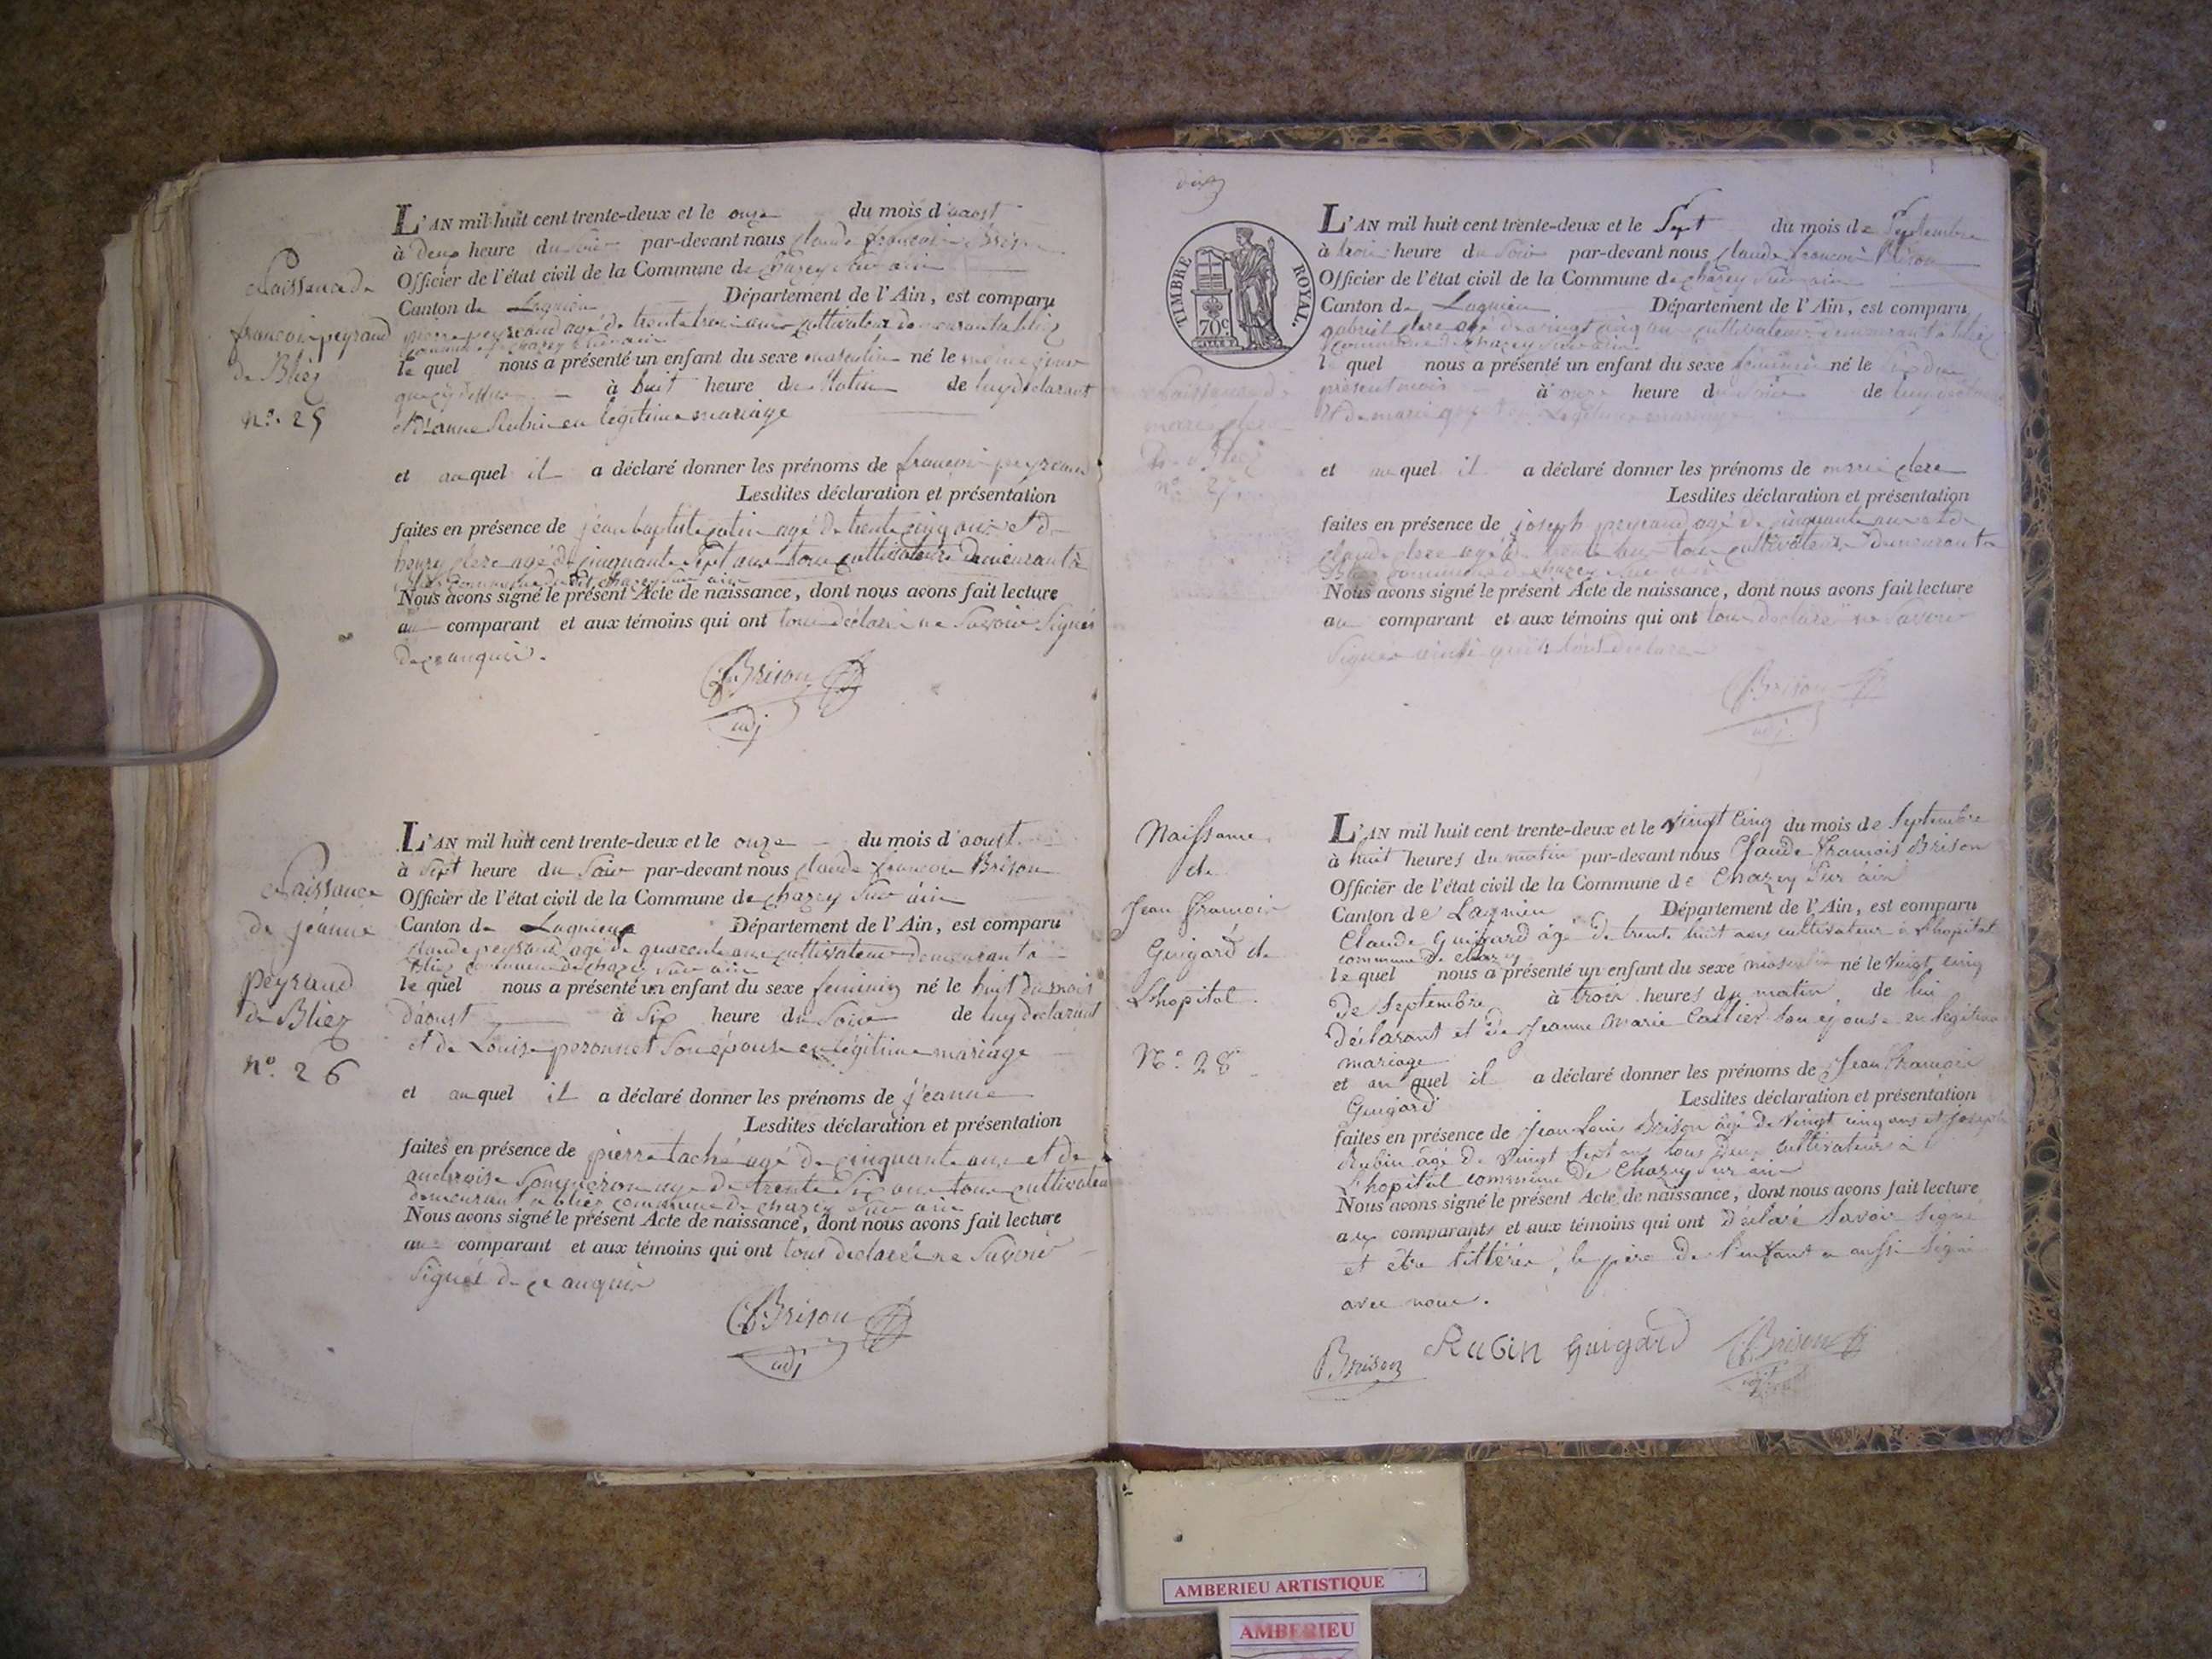 L'AN mil huit cent trente-deux et le onze du mois d'aoust
à deux heure du soir par-devant nous claude françois Brison
Officier de l'état civil de la Commune de chazey sur ain
Canton de Lagnieu Département de l'Ain, est comparu
pierre peyraud agé de trente trois ans cultivateur demeurant a bliez
commune de chazey sur ain
le quel nous a présenté un enfant du sexe masculin né le même jour
que cy dessus à huit heure du Matin de luy declarant
et Rubin en legitime mariage
et auquel il a déclaré donner les prénoms de françois peyraud
Lesdites déclaration et présentation
faites en présence de jean baptiste agé de trente cinq ans et de
henry clerc agé de cinquante sept ans tous cultivateurs demeurant à
chazey sur ain
Nous avons signé le présent Acte de naissance, dont nous avons fait lecture
au comparant et aux témoins qui ont tous déclaré ne Savoir Signer
de ce anquis.
CfBrison
adj
Naissance de
francois peyraud
de Bliez
n.o 25
L'AN mil huit cent trente-deux et le onze du mois d'aoust
à Sept heure du Soir par-devant nous claude françois Brison
Officier de l'état civil de la Commune de chazey sur ain
Canton de Lagnieu Département de l'Ain, est comparu
claude peyraud agé de quarente ans cultivateur demeurant a
bliez commune de chazey sur ain
le quel nous a présenté un enfant du sexe feminin né le huit du mois
d'aoust à Six heure du Soir de luy declarant
et de Louise peronnet Son épouse en légitime mariage
et auquel il a déclaré donner les prénoms de jéanne
Lesdites déclaration et présentation
faites en présence de pierre taché agé de cinquante ans et de
ambroise agé de trente Six ans tous cultivateur
demeurant a bliez commune de chazey sur ain
Nous avons signé le présent Acte de naissance, dont nous avons fait lecture
au comparant et aux témoins qui ont tous declaré ne Savoir
Signer de ce anquis
CfBrison
adj
Naissance
de jéanne
peyraud
de Bliez
n.o 26
TIMBRE ROYAL.
70c
L'AN mil huit cent trente-deux et le Sept du mois de Septembre
à trois heure du Soir par-devant nous claude francois Brison
Officier de l'état civil de la Commune de chazey sur ain
Canton de Lagnieu Département de l'Ain, est comparu
gabriel clerc agé de vingt cinq ans cultivateur demeurant a bliez
commune de chazey sur ain
le quel nous a présenté un enfant du sexe feminin né le
présent mois à onze heure du de luy declarant
et de marie legitime mariage
et auquel il a déclaré donner les prénoms de marie clerc
Lesdites déclaration et présentation
faites en présence de joseph peyraud agé de cinquante ans et de
claude clerc agé de trente tous cultivateurs demeurant a
Bliez commune de chazey sur ain
Nous avons signé le présent Acte de naissance, dont nous avons fait lecture
au comparant et aux témoins qui ont tous declaré ne Savoir
Signer
CfBrison
adj
Naissance de
marie clerc
de Bliez
n.o 27
L'AN mil huit cent trente-deux et le vingt cinq du mois de Septembre
à huit heures du matin par-devant nous Claude François Brison
Officier de l'état civil de la Commune de Chazey Sur ain
Canton de Lagnieu Département de l'Ain, est comparu
Claude Guigard âgé de trente huit ans cultivateur à Lhopital
commune de chazey
le quel nous a présenté un enfant du sexe masculin né le Vingt cinq
de Septembre à trois heures du matin, de lui
Déclarant et de Jeanne Marie Son epouse en legitime
mariage
et au quel il a déclaré donner les prénoms de Jean François
Guigard Lesdites déclaration et présentation
faites en présence de Jean Louis Brison âgé de Vingt cinq ans et Joseph
Rubin âgé de Vingt Sept ans tous deux cultivateurs à
L'hopital commune de Chazey sur ain
Nous avons signé le présent Acte de naissance, dont nous avons fait lecture
aux comparants et aux témoins qui ont déclaré Savoir Signé
et être littérés, le père de l'enfant a aussi Signé
avec nous.
Brison Rubin Guigard CfBrison
adj
Naissance
de
Jean François
Guigard de
Lhopital.
N.o 28
AMBERIEU ARTISTIQUE
AMBERIEU